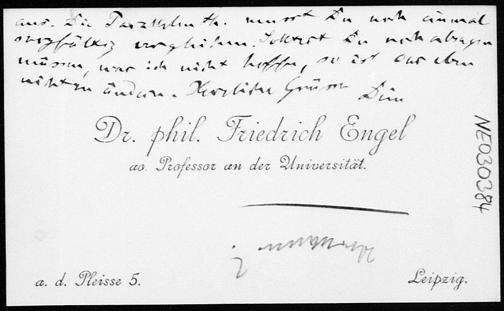 aus. Die Parallelenth. musst Du noch einmal
sorgfältig vergleichen. Solltest Du noch absagen
müssen, was ich nicht hoffe, so ist das eben
nicht zu ändern. Herzliche Grüsse
Dein
Dr. phil. Friedrich Engel
ao. Professor an der Universität.
a. d. Pleisse 5.
Leipzig.
NE030384